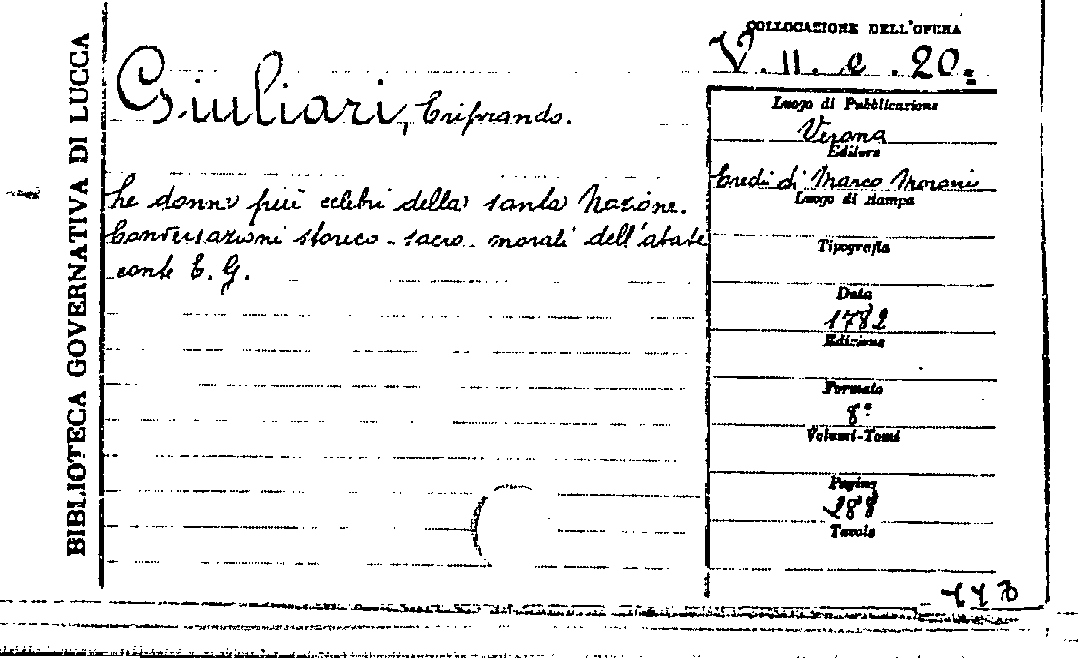 BIBLIOTECA GOVERNATIVA DI LUCCA
COLLOCAZIONE DELL'OPERA
V. II. e. 20.
Giuliari, Erifrando.
Le donne più celebri della santa Nazione.
Conversazioni storico-sacro-morali dell'abate
conte E. G.
Luogo di Pubblicazione
Verona
Editore
Eredi di Marco Moroni
Luogo di stampa
Tipografia
Data
1782
Edizione
Formato
8°
Volumi-Tomi
Pagine
288
Tavole